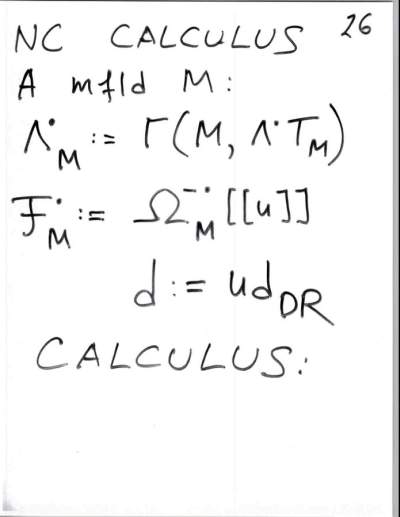 NC CALCULUS 26
A mfld M:
Λ˙_M := Γ(M, Λ˙T_M)
F˙_M := Ω^{-·}_M [[u]]
d := ud_{DR}
CALCULUS: